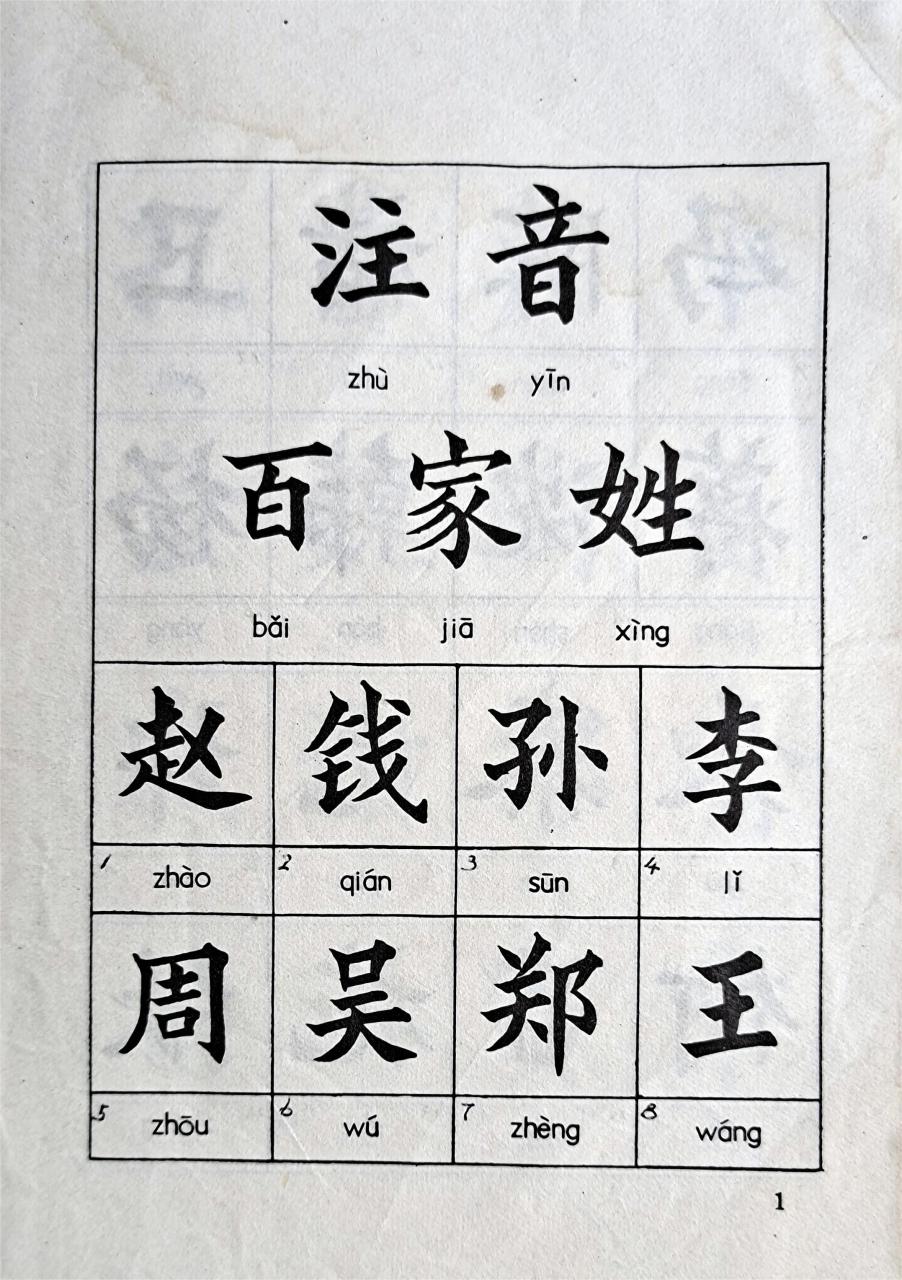 注音
zhù yīn
百家姓
bǎi jiā xìng
赵 钱 孙 李
1 zhào 2 qián 3 sūn 4 lǐ
周 吴 郑 王
5 zhōu 6 wú 7 zhèng 8 wáng
1